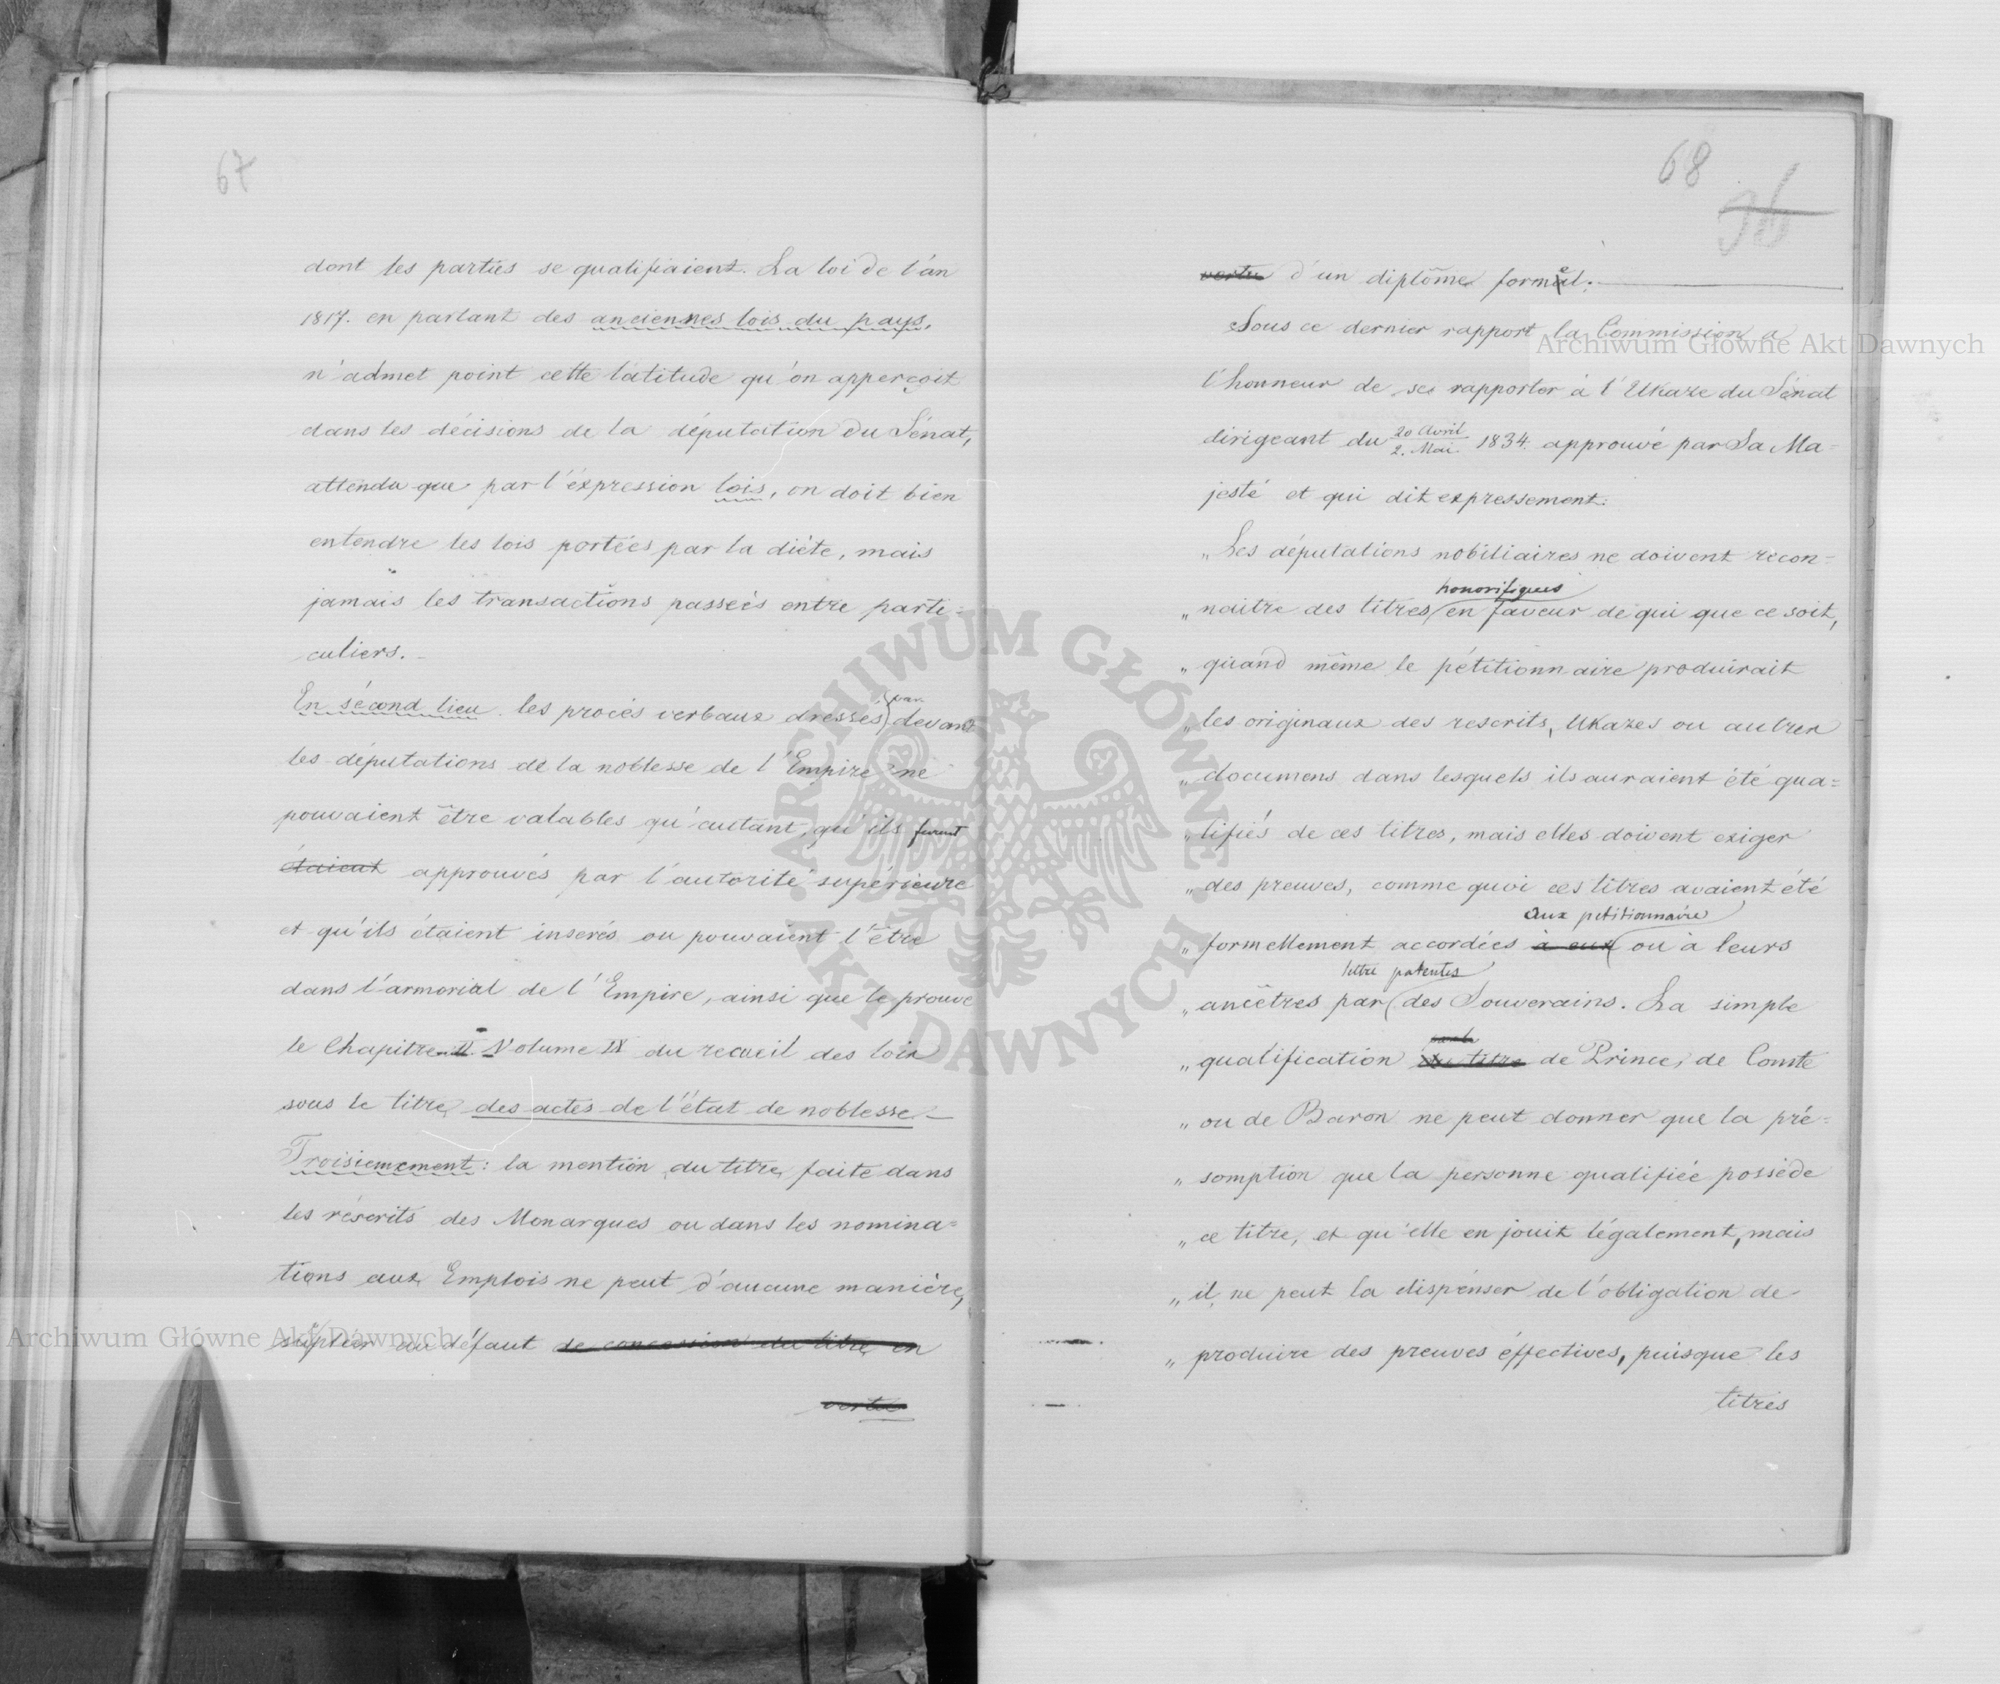 67
dont les parties se qualifiaient. La loi de l'an
1817. en parlant des anciennes lois du pays,
n'admet point cette latitude qu'on apperçoit
dans les décisions de la députation du Sénat,
attendu que par l'éxpression lois, on doit bien
entendre les lois portées par la diète, mais
jamais les transactions passeés entre parti=
culiers.
En sécond lieu les procès verbaux dressés par devant
les députations de la noblesse de l'Empire ne
pouvaient être valables qu'autant, qu'ils furent
étaient approuvés par l'autorité supérieure
et qu'ils étaient inserés ou pouvaient l'être
dans l'armorial de l'Empire, ainsi que le prouve
le Chapitre II Volume IX du recueil des lois
sous le titre des actes de l'état de noblesse
Troisiemement: la mention du titre faite dans
les réscrits des Monarques ou dans les nomina=
tions aux Emplois ne peut d'aucune manière,
supléer au défaut de concession du titre en
vertu
68
vertu d'un diplôme formel.
Sous ce dernier rapport la Commission a
l'honneur de se rapporter à l'Ukaze du Sénat
dirigeant du 20 Avril / 2. Mai 1834. approuvé par Sa Ma=
jesté et qui dit expressement:
"Les députations nobiliaires ne doivent recon=
honorifiques
"naitre des titres en faveur de qui que ce soit,
"quand même le pétitionnaire produirait
"les originaux des rescrits, Ukazes ou autres
"documens dans lesquels ils auraient été qua=
"lifiés de ces titres, mais elles doivent exiger
"des preuves, comme quoi ces titres avaient été
aux petitionnaire
"formellement accordées à eux ou à leurs
lettre patentes
"ancêtres par des Souverains. La simple
"qualification du titre de Prince, de Comte
"ou de Baron ne peut donner que la pré=
"somption que la personne qualifiée possède
"ce titre, et qu'elle en jouit légalement, mais
"il ne peut la dispenser de l'obligation de
"produire des preuves éffectives, puisque les
titres
ARCHIWUM GŁÓWNE AKT DAWNYCH
Archiwum Główne Akt Dawnych
Archiwum Główne Akt Dawnych